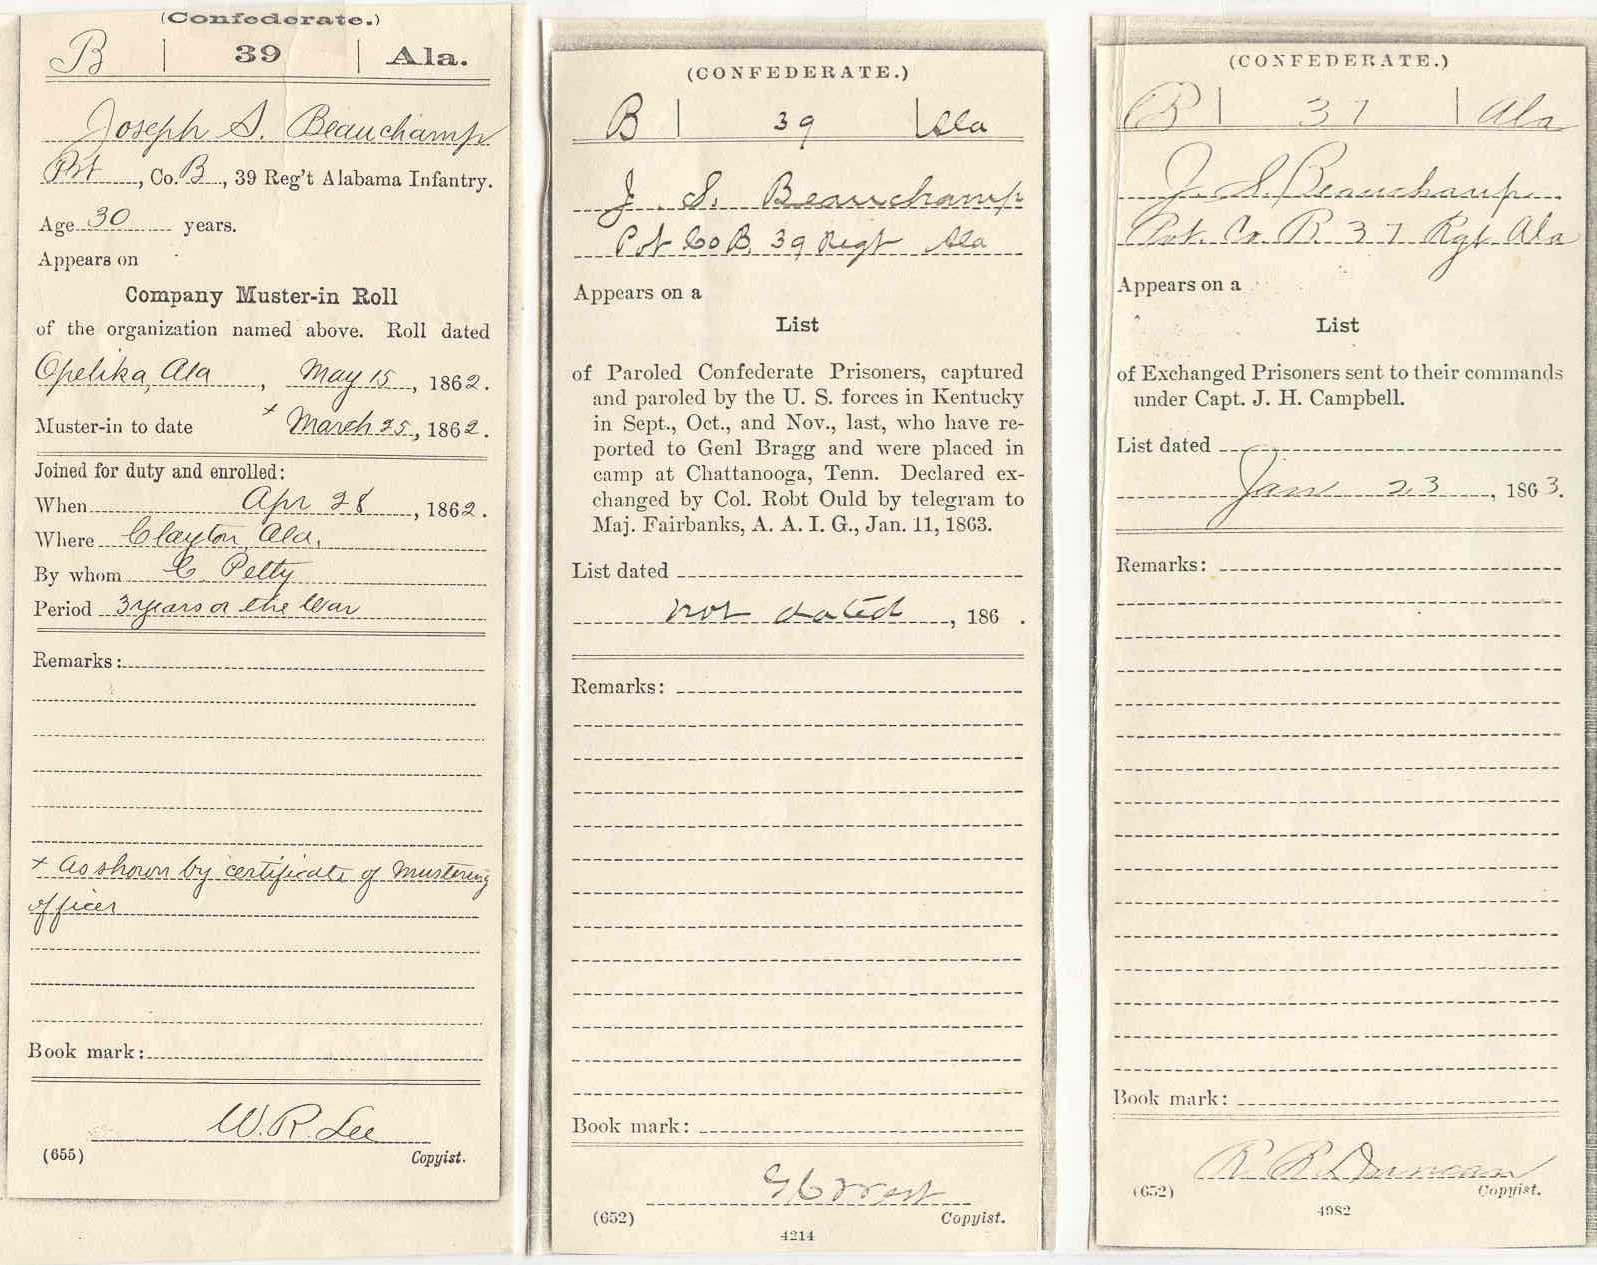 (Confederate.)
B | 39 | Ala.
Joseph S. Beauchamp
Pvt, Co. B, 39 Reg't Alabama Infantry.
Age 30 years.
Appears on
Company Muster-in Roll
of the organization named above. Roll dated
Opelika, Ala, May 15, 1862.
Muster-in to date x March 25, 1862.
Joined for duty and enrolled:
When Apr 28, 1862.
Where Clayton, Ala.
By whom C. Petty
Period 3 years or the War
Remarks:
x As shown by certificate of mustering
officer
Book mark:
W. R. Lee
(655) Copyist.
(CONFEDERATE.)
B | 39 | Ala
J. S. Beauchamp
Pvt Co B, 39 Regt Ala
Appears on a
List
of Paroled Confederate Prisoners, captured
and paroled by the U. S. forces in Kentucky
in Sept., Oct., and Nov., last, who have re-
ported to Genl Bragg and were placed in
camp at Chattanooga, Tenn. Declared ex-
changed by Col. Robt Ould by telegram to
Maj. Fairbanks, A. A. I. G., Jan. 11, 1863.
List dated
not dated, 186 .
Remarks:
Book mark:
West
(652) Copyist.
4214
(CONFEDERATE.)
B | 37 | Ala
J. S. Beauchamp
Pvt. Co. B 37 Rgt. Ala
Appears on a
List
of Exchanged Prisoners sent to their commands
under Capt. J. H. Campbell.
List dated
Jan 23, 1863.
Remarks:
Book mark:
R R Duncan
(652) Copyist.
4982